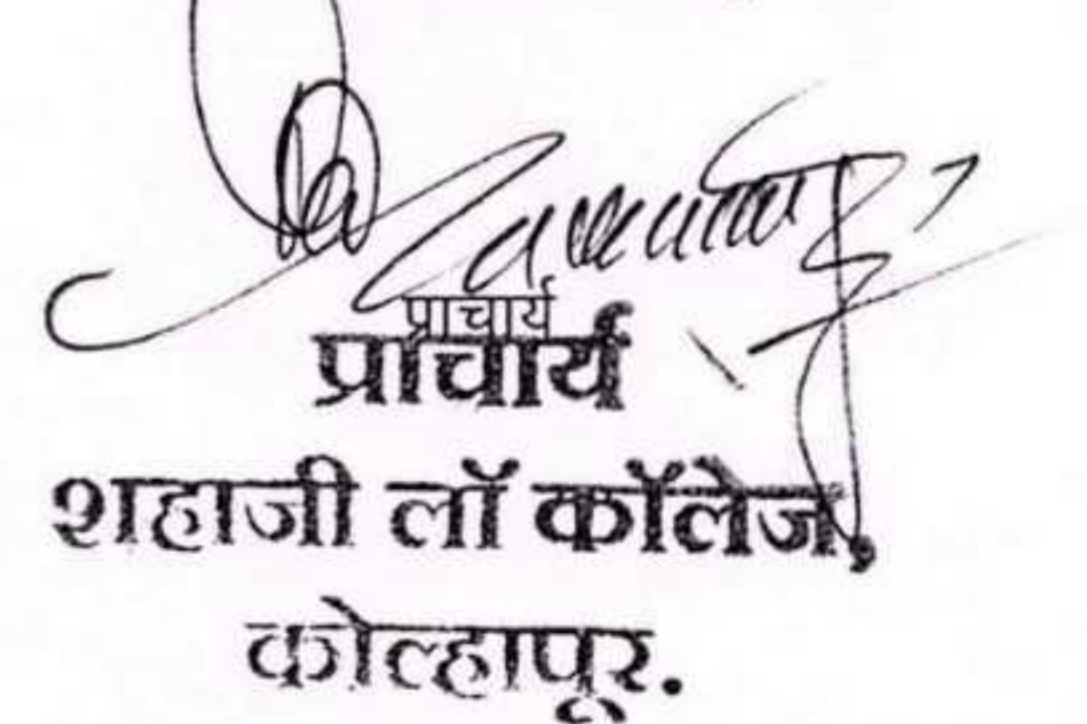 प्राचार्य
प्राचार्य
शहाजी लॉ कॉलेज,
कोल्हापूर.